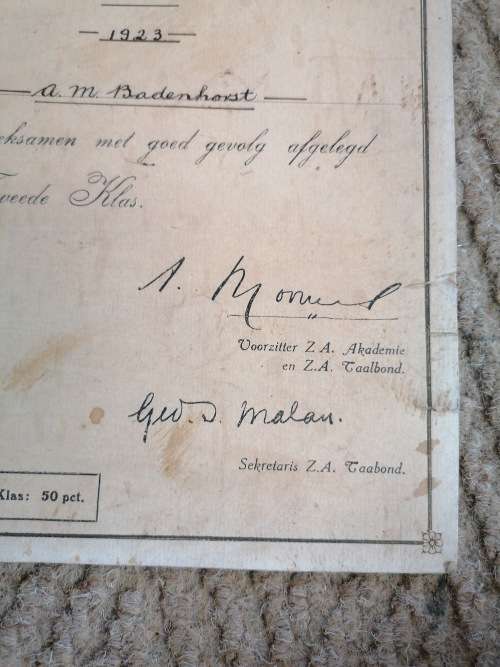 1923
A. M. Badenhorst
eksamen met goed gevolg afgelegd
Tweede Klas.
A. Moorrees
Voorzitter Z. A. Akademie
en Z.A. Taalbond.
Geo. S. Malan.
Sekretaris Z.A. Taabond.
Klas: 50 pct.